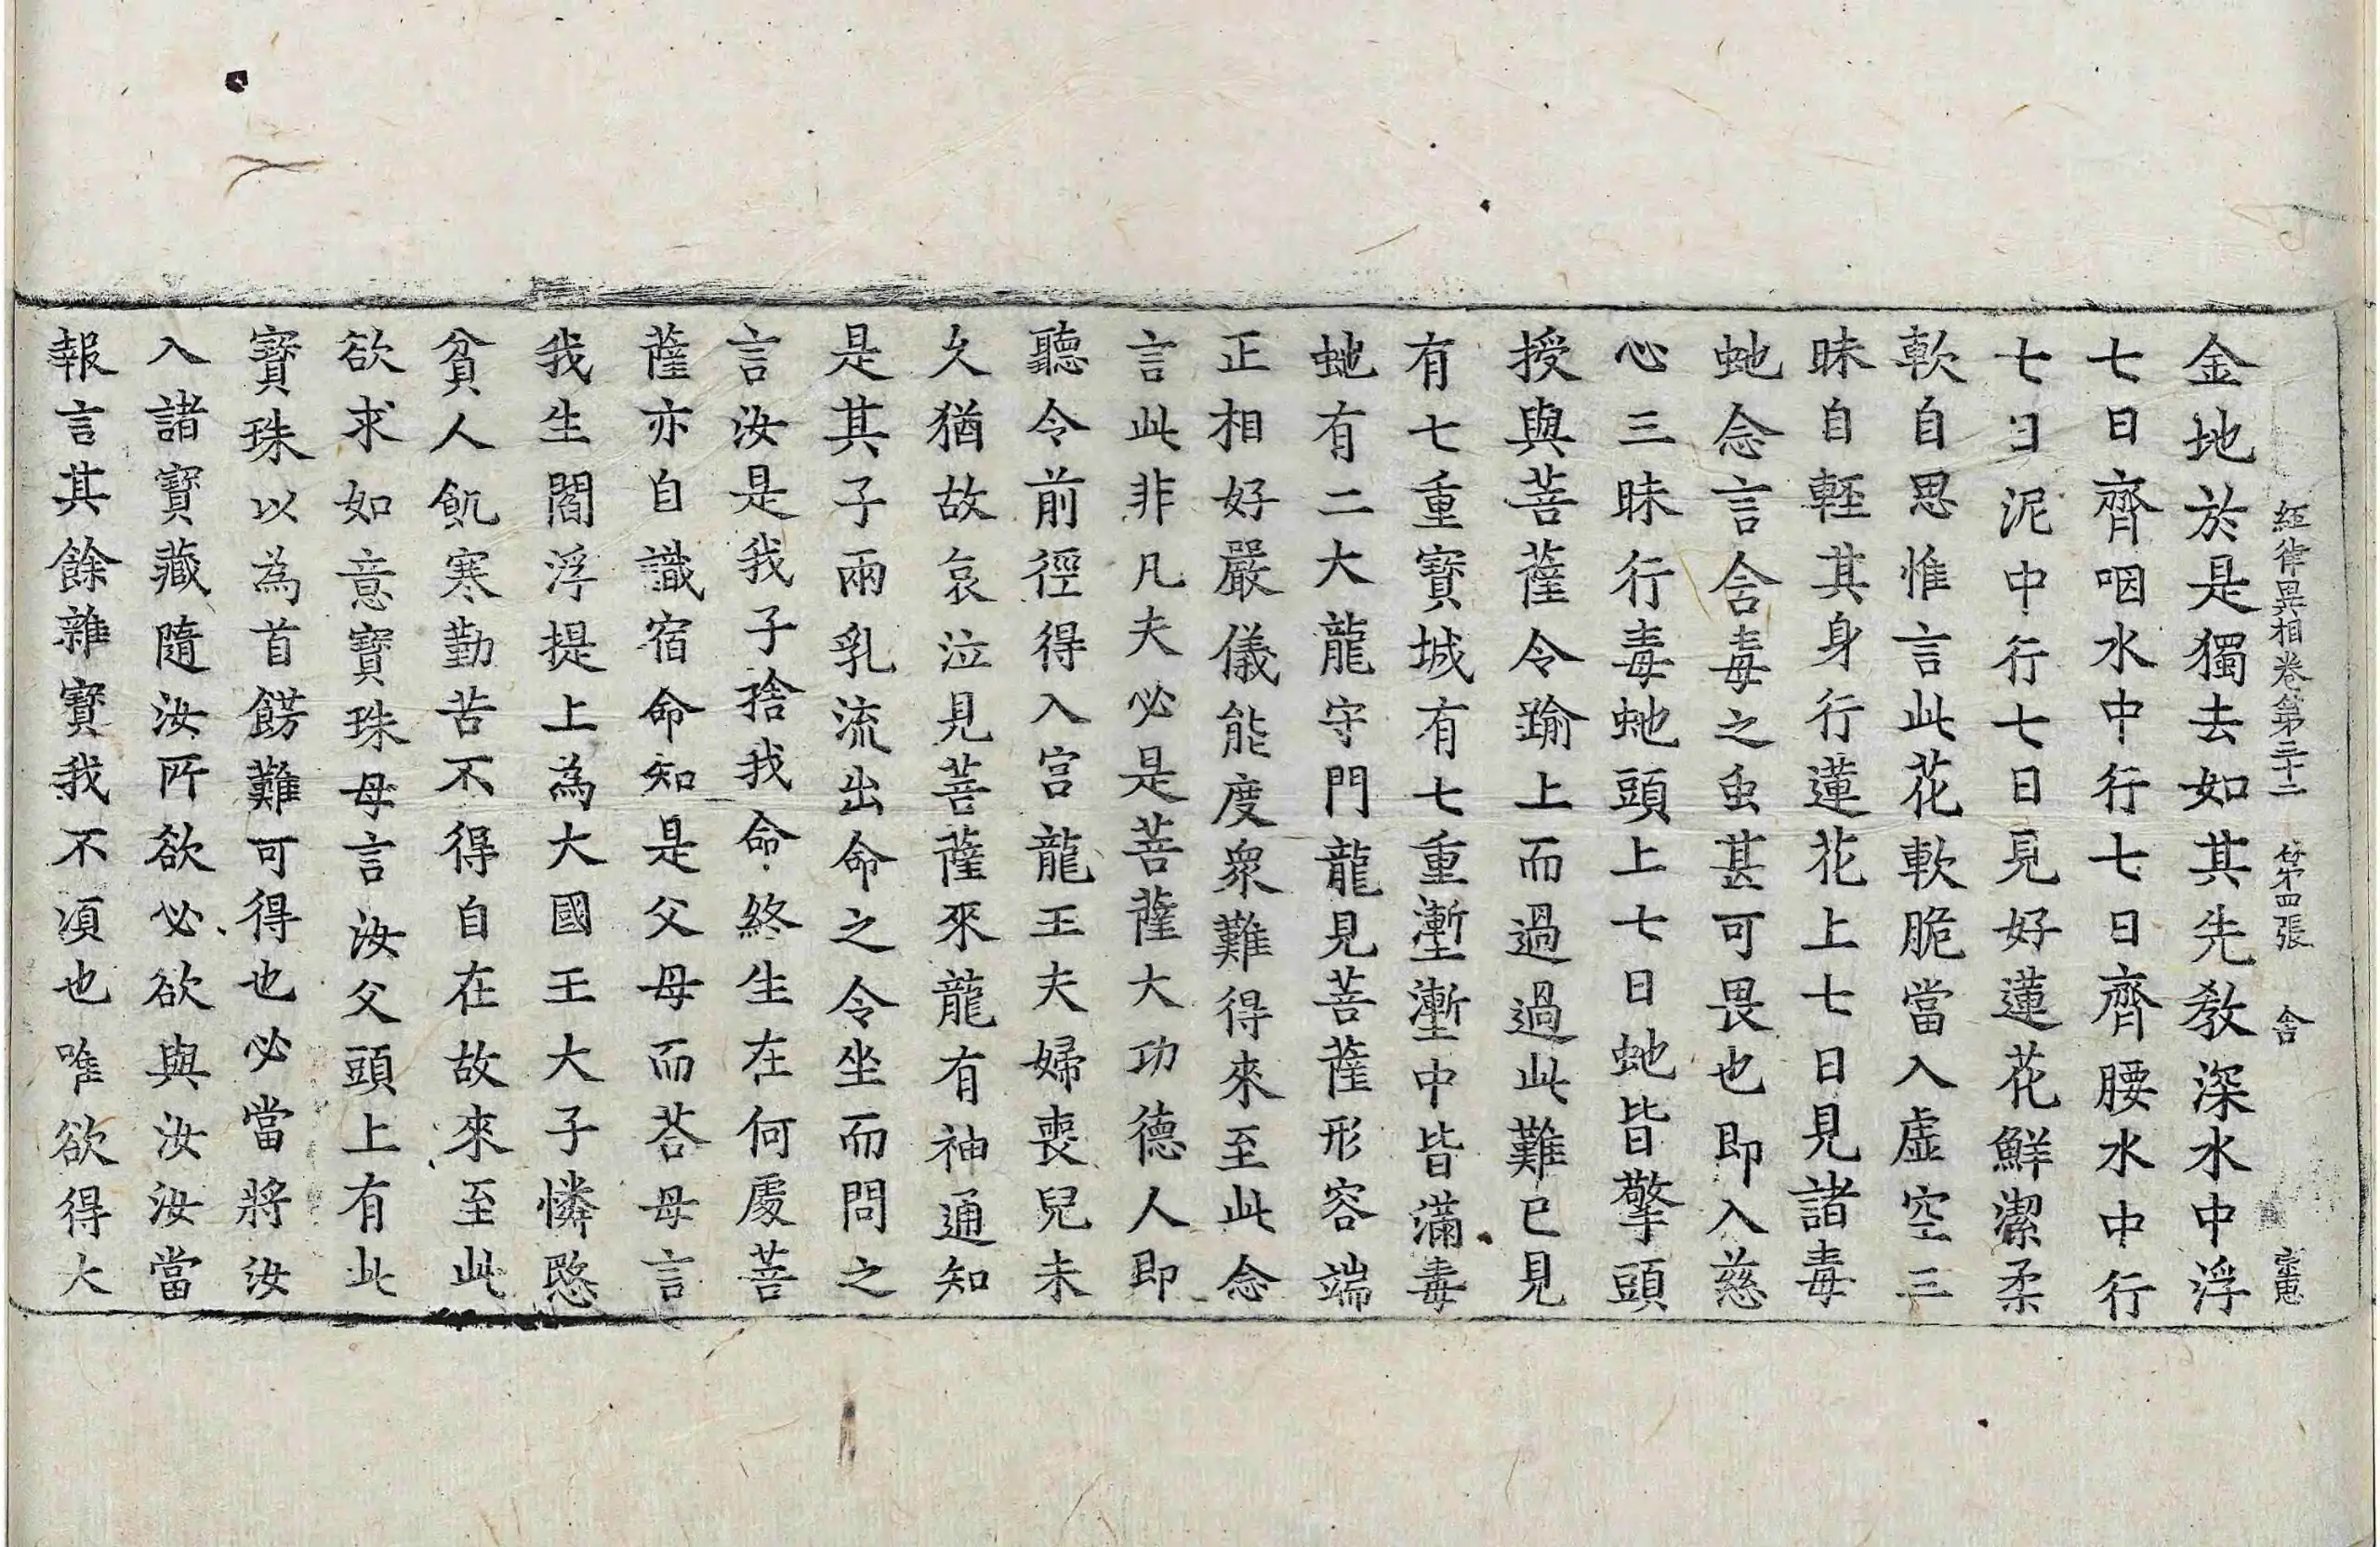 經律異相卷第三十二 第四張 舍 宗惠
金地於是獨去如其先教深水中浮
七日齊咽水中行七日齊腰水中行
七日泥中行七日見好蓮花鮮潔柔
軟自思惟言此花軟脆當入虛空三
昧自輕其身行蓮花上七日見諸毒
虵念言含毒之虫甚可畏也即入慈
心三昧行毒虵頭上七日虵皆擎頭
授與菩薩令踰上而過過此難已見
有七重寶城有七重塹塹中皆滿毒
虵有二大龍守門龍見菩薩形容端
正相好嚴儀能度衆難得來至此念
言此非凡夫必是菩薩大功德人即
聽令前徑得入宮龍王夫婦喪兒未
久猶故哀泣見菩薩來龍有神通知
是其子兩乳流出命之令坐而問之
言汝是我子捨我命終生在何處菩
薩亦自識宿命知是父母而荅母言
我生閻浮提上為大國王大子憐愍
貧人飢寒勤苦不得自在故來至此
欲求如意寶珠母言汝父頭上有此
寶珠以為首餝難可得也必當將汝
入諸寶藏隨汝所欲必欲與汝汝當
報言其餘雜寶我不湏也唯欲得大